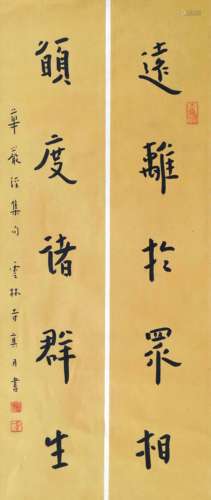 遠離於眾相
願度諸群生
華嚴經集句 雲林寺真月書